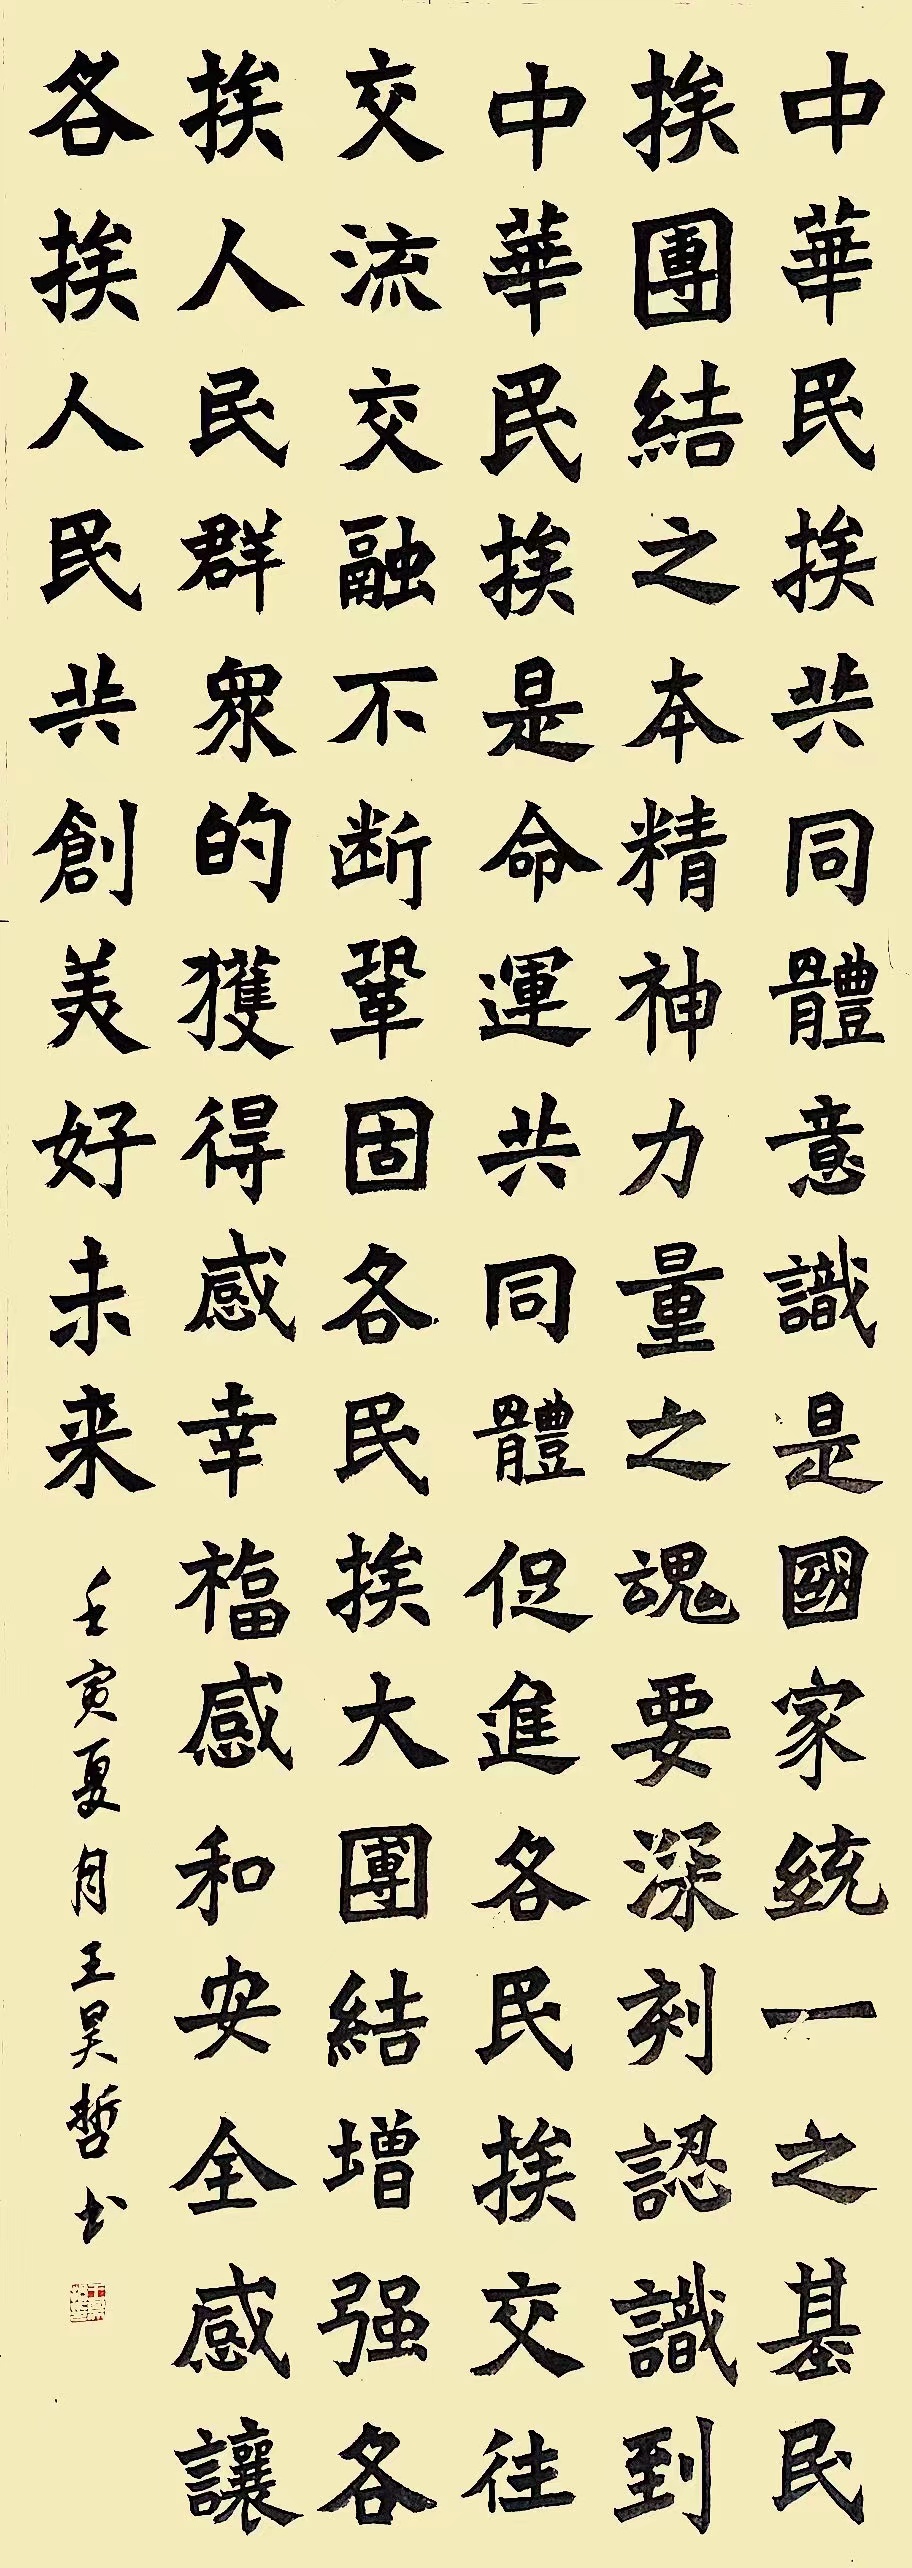 中華民挨共同體意識是國家統一之基民
挨團結之本精神力量之魂要深刻認識到
中華民挨是命運共同體促進各民挨交往
交流交融不断鞏固各民挨大團結增强各
挨人民群衆的獲得感幸福感和安全感讓
各挨人民共創美好未来
壬寅夏月王昊哲书